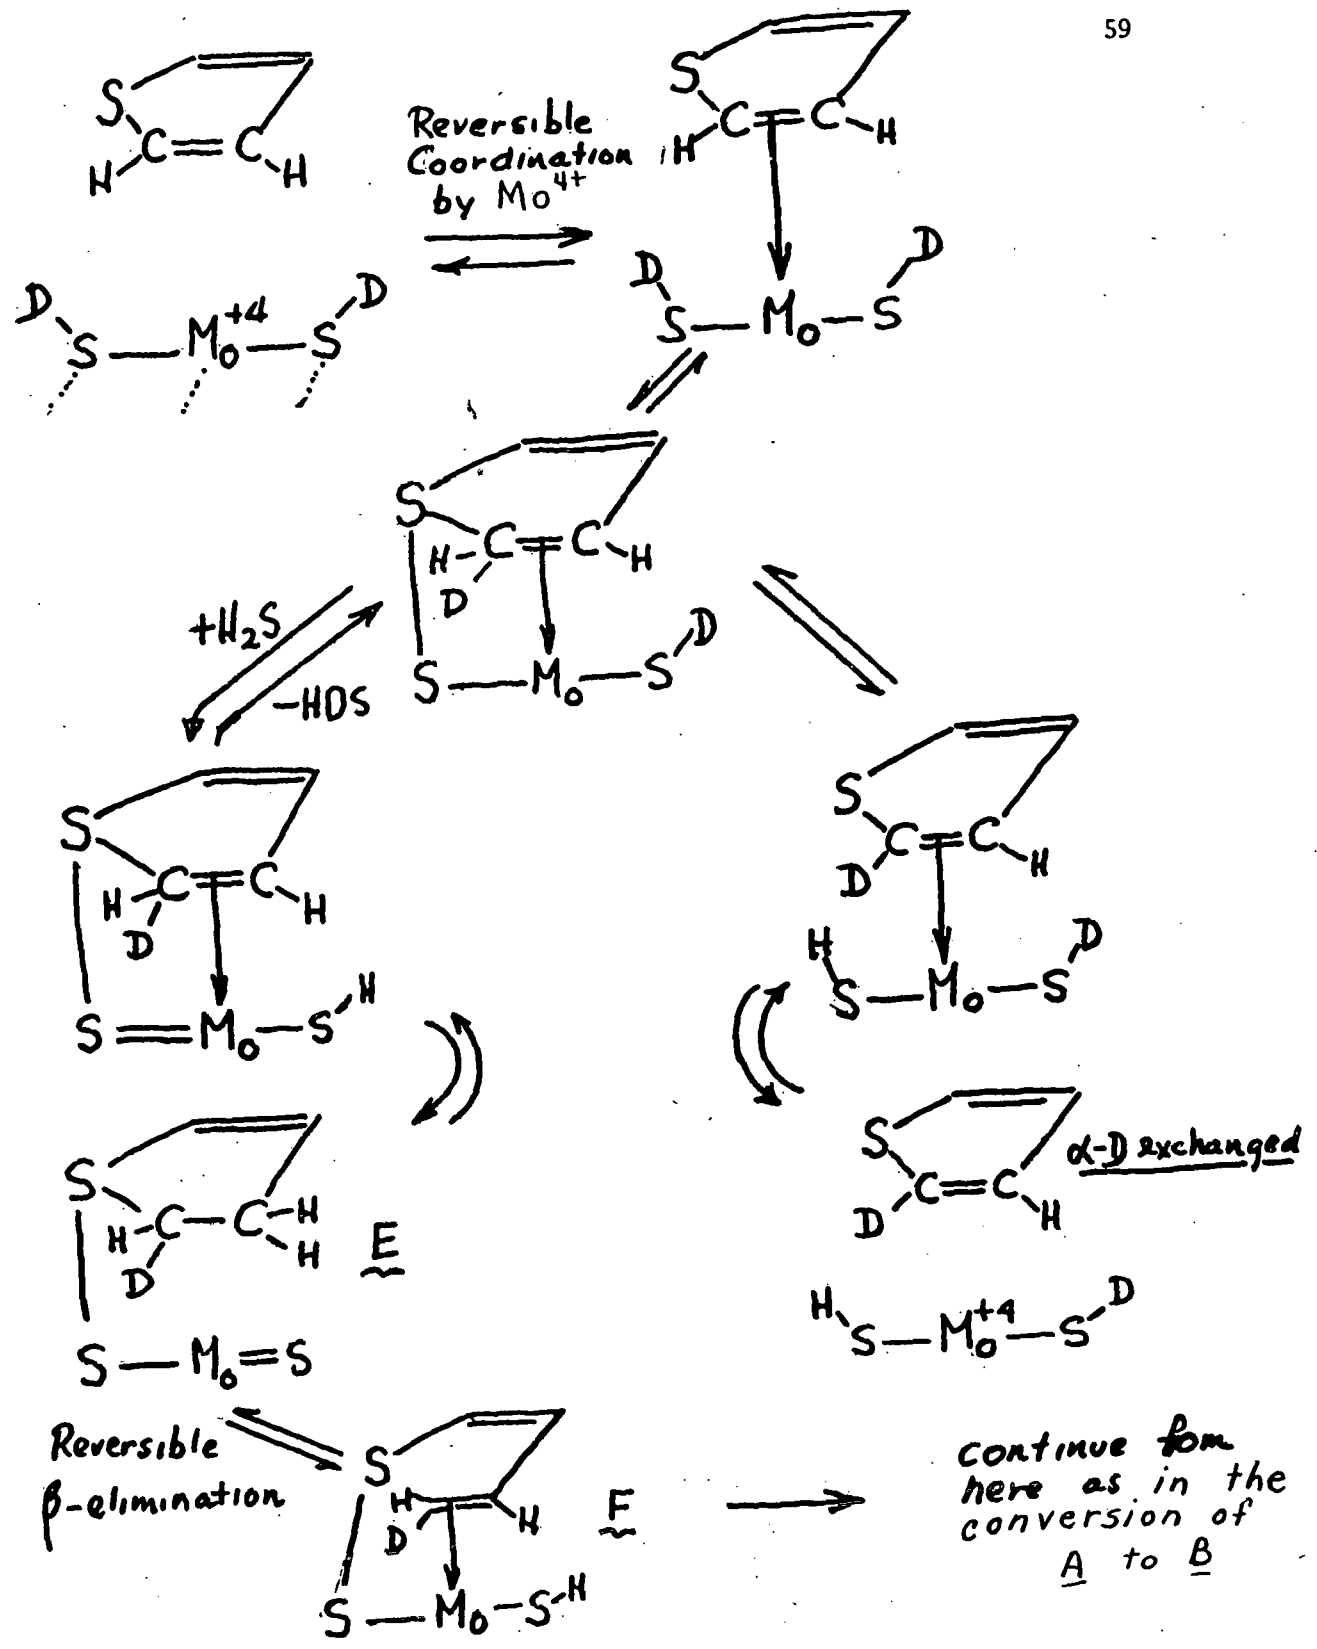 59
S
C=C
H
H
Reversible
Coordination
by Mo4+
S
C=C
H
H
D
D
S—Mo+4—S
D
D
S—Mo—S
S
H
C=C
D
H
+H2S
-HDS
D
S—Mo—S
S
H
C=C
D
H
H
S=Mo—S
S
C=C
D
H
H
D
S—Mo—S
S
H
C—C
H
D
H
E
S—Mo=S
S
C=C
D
H
α-D exchanged
H
D
S—Mo+4—S
Reversible
β-elimination
S
H
D
H
F
S—Mo—S
H
continue fom
here as in the
conversion of
A to B